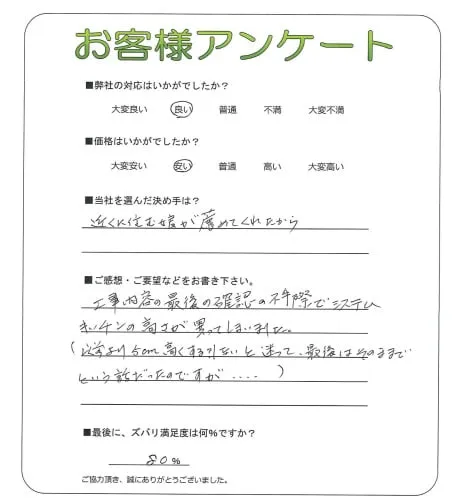 お客様アンケート
■弊社の対応はいかがでしたか?
大変良い 良い 普通 不満 大変不満
■価格はいかがでしたか?
大変安い 安い 普通 高い 大変高い
■当社を選んだ決め手は?
近くに住む娘が薦めてくれたから
■ご感想・ご要望などをお書き下さい。
工事内容の最後の確認の不手際でシステム
キッチンの高さが異ってしまいました。
(従来より5cm高くする引ないと迷って、最後はそのままで
という話だったのですが....)
■最後に、ズバリ満足度は何%ですか?
80%
ご協力頂き、誠にありがとうございました。